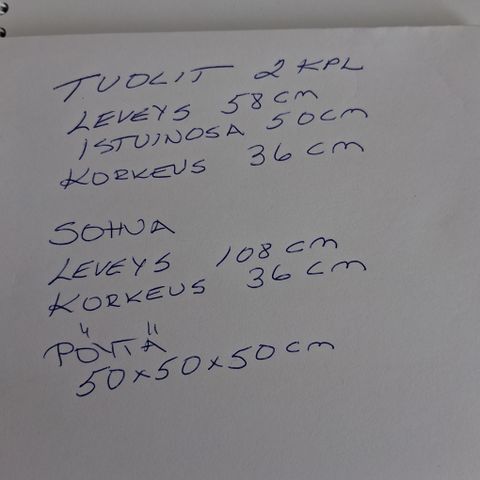 TUOLIT 2 KPL
LEVEYS 58 cm
ISTUINOSA 50 cm
KORKEUS 36 cm
SOHVA
LEVEYS 108 cm
KORKEUS 36 cm
PÖYTÄ
50x50x50 cm